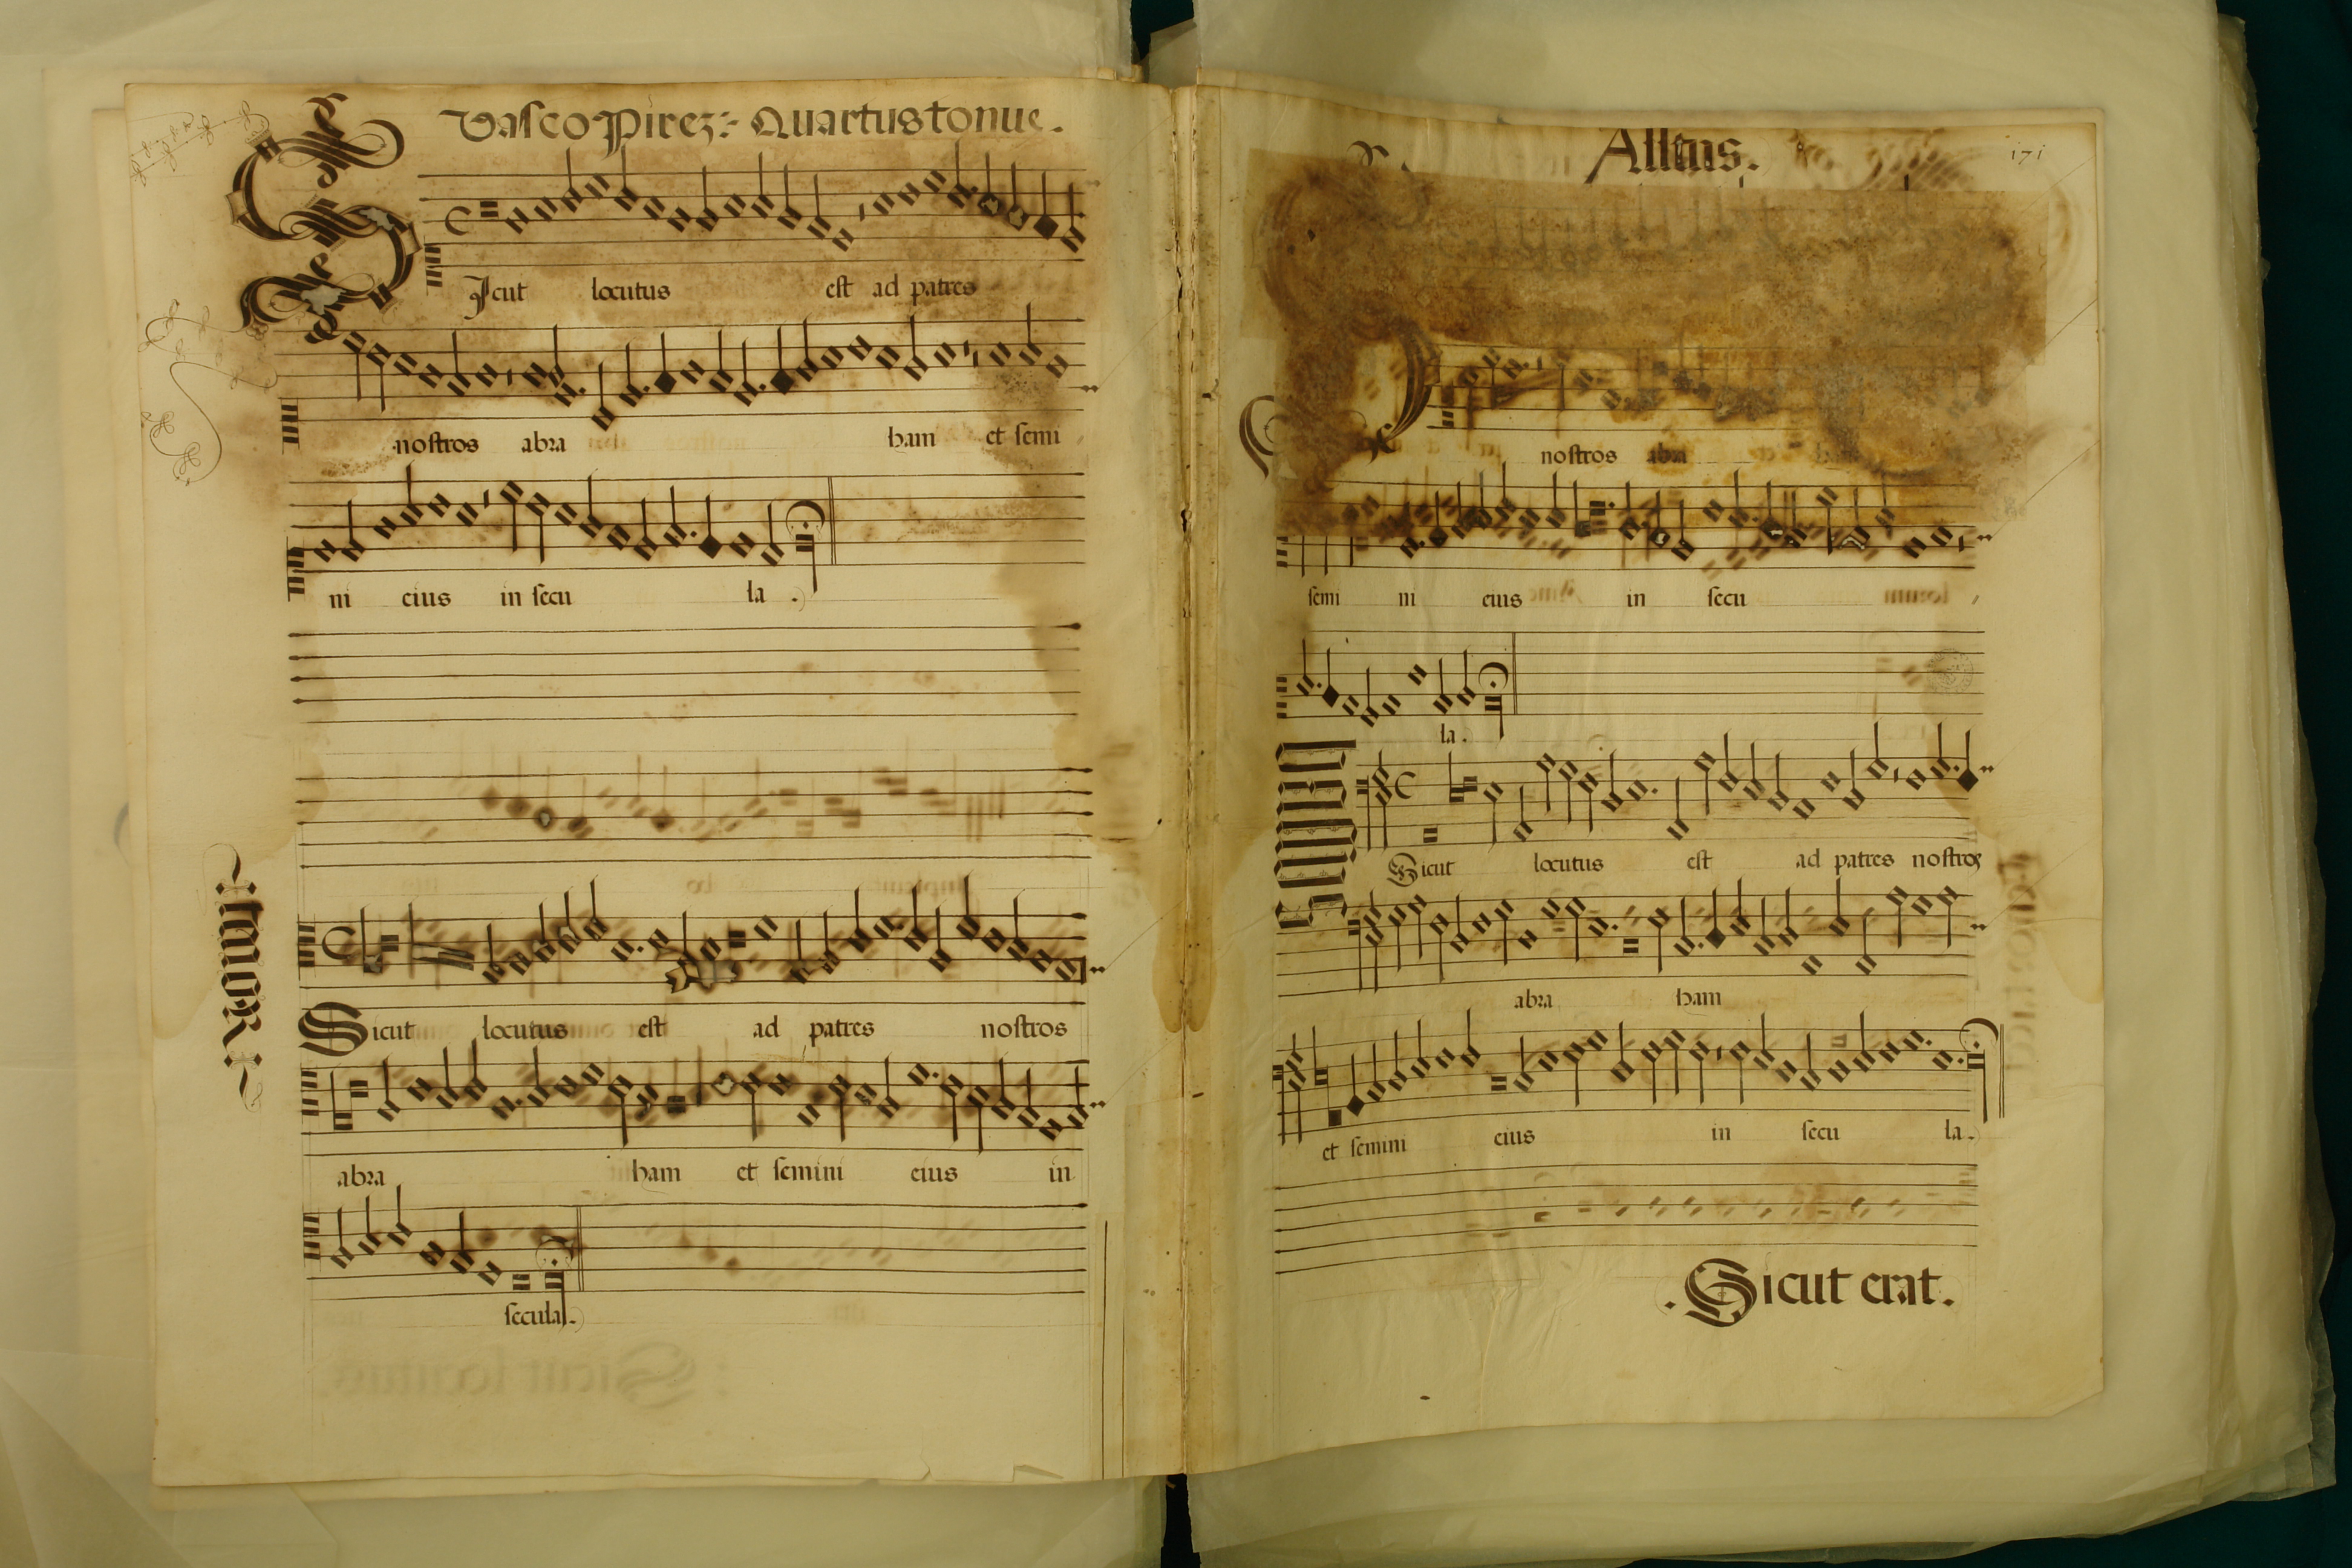 Vasco Pirez :- Quartus tonus.
SIcut locutus est ad patres
nostros abra ham et semi
ni eius in secu la .
Tenor
Sicut locutus est ad patres nostros
abra ham et semini eius in
secula.
Altus.
171
nostros abra
semi ni eius in secu
la.
Sicut locutus est ad patres nostros
abra ham
et semini eius in secu la.
.Sicut erat.